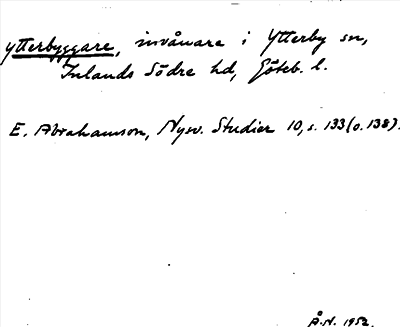 ytterbyggare, invånare i Ytterby sn,
Inlands Södre hd, Göteb. l.
E. Abrahamson, Nysv. Studier 10, s. 133 (o. 138).
Å.H. 1952.